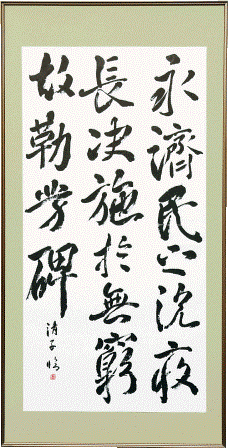 永濟民之沈
長決施於無窮
故勒芳碑
清子臨